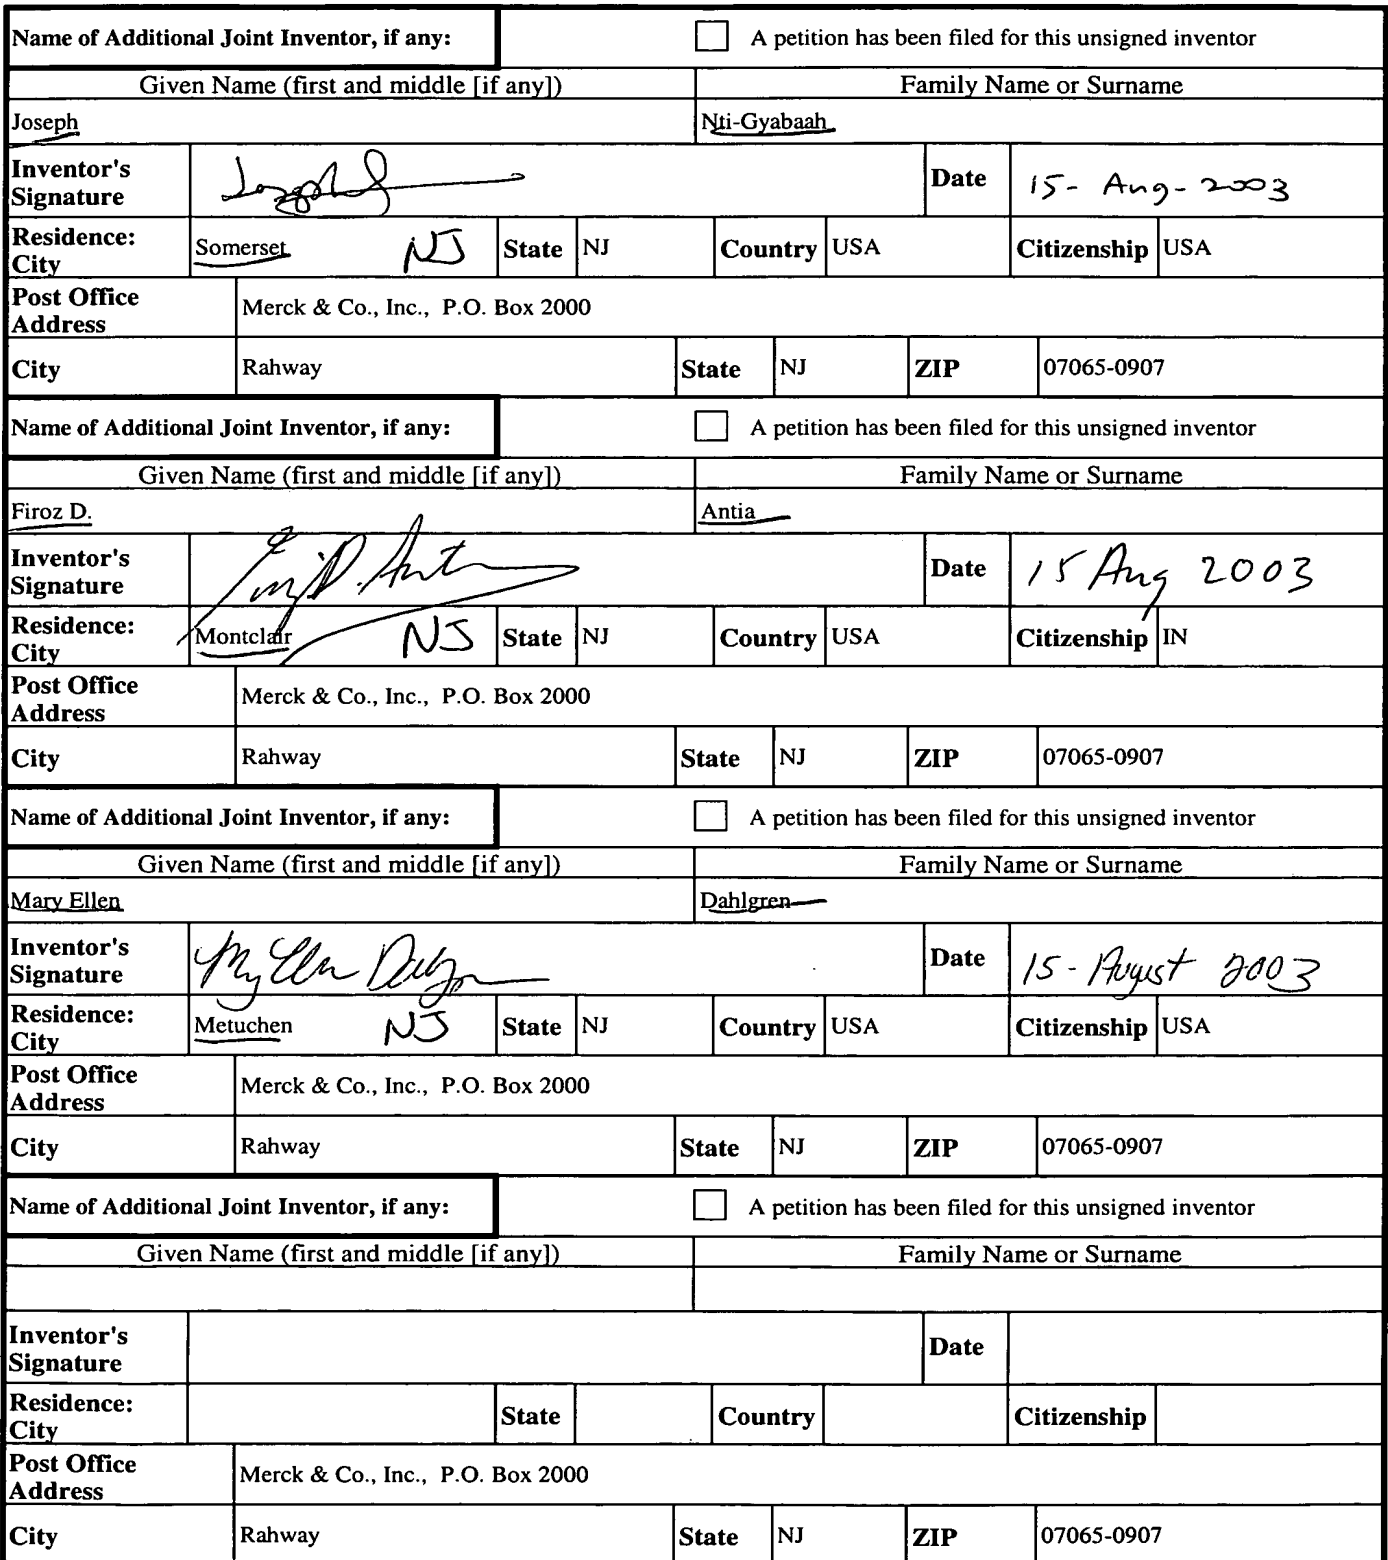 Name of Additional Joint Inventor, if any: A petition has been filed for this unsigned inventor
Given Name (first and middle [if any]) Family Name or Surname
Joseph Nti-Gyabaah
Inventor's Signature Date 15-Aug-2003
Residence: City Somerset NJ State NJ Country USA Citizenship USA
Post Office Address Merck & Co., Inc., P.O. Box 2000
City Rahway State NJ ZIP 07065-0907
Name of Additional Joint Inventor, if any: A petition has been filed for this unsigned inventor
Given Name (first and middle [if any]) Family Name or Surname
Firoz D. Antia
Inventor's Signature Firoz D. Antia Date 15 Aug 2003
Residence: City Montclair NJ State NJ Country USA Citizenship IN
Post Office Address Merck & Co., Inc., P.O. Box 2000
City Rahway State NJ ZIP 07065-0907
Name of Additional Joint Inventor, if any: A petition has been filed for this unsigned inventor
Given Name (first and middle [if any]) Family Name or Surname
Mary Ellen Dahlgren
Inventor's Signature Mary Ellen Dahlgren Date 15-August 2003
Residence: City Metuchen NJ State NJ Country USA Citizenship USA
Post Office Address Merck & Co., Inc., P.O. Box 2000
City Rahway State NJ ZIP 07065-0907
Name of Additional Joint Inventor, if any: A petition has been filed for this unsigned inventor
Given Name (first and middle [if any]) Family Name or Surname
Inventor's Signature Date
Residence: City State Country Citizenship
Post Office Address Merck & Co., Inc., P.O. Box 2000
City Rahway State NJ ZIP 07065-0907